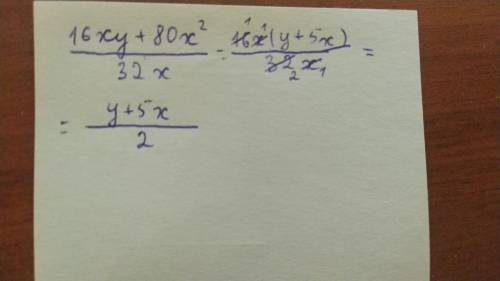 (16xy + 80x²)/(32x) = (16x(y + 5x))/(32x) =
= (y + 5x)/2